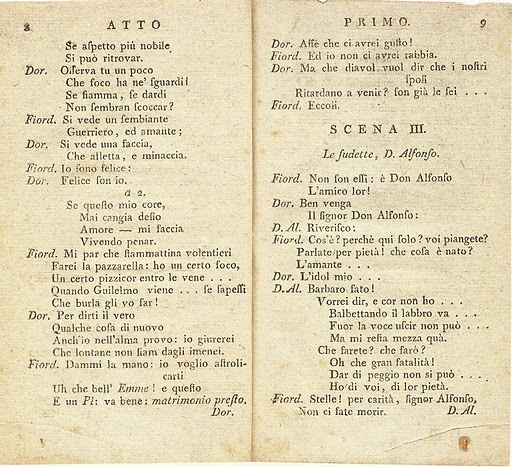 8 ATTO
Se aſpetto più nobile
Si può ritrovar.
Dor. Oſſerva tu un poco
Che foco ha ne' ſguardi!
Se fiamma, ſe dardi
Non ſembran ſcoccar?
Fiord. Si vede un ſembiante
Guerriero, ed amante;
Dor. Si vede una faccia,
Che alletta, e minaccia.
Fiord. Io ſono felice:
Dor. Felice ſon io.
a 2.
Se queſto mio core,
Mai cangia deſio
Amore — mi faccia
Vivendo penar.
Fiord. Mi par che ſiammattina volentieri
Farei la pazzarella: ho un certo foco,
Un certo pizzicor entro le vene . . .
Quando Guilelmo viene . . . ſe ſapeſſi
Che burla gli vo far!
Dor. Per dirti il vero
Qualche coſa di nuovo
Anch'io nell'alma provo: io giurerei
Che lontane non ſiam dagli imenei.
Fiord. Dammi la mano: io voglio aſtroli-
carti
Uh che bell' Emme! e queſto
E un Pi: va bene: matrimonio preſto.
Dor.
PRIMO. 9
Dor. Affè che ci avrei guſto!
Fiord. Ed io non ci avrei rabbia.
Dor. Ma che diavol vuol dir che i noſtri
ſpoſi
Ritardano a venir? ſon già le ſei . . .
Fiord. Eccoli.
SCENA III.
Le ſudette, D. Alfonſo.
Fiord. Non ſon eſſi: è Don Alfonſo
L'amico lor!
Dor. Ben venga
Il ſignor Don Alfonſo:
D. Al. Riveriſco:
Fiord. Cos'è? perchè qui ſolo? voi piangete?
Parlate per pietà! che coſa è nato?
L'amante . . .
Dor. L'idol mio . . .
D. Al. Barbaro fato!
Vorrei dir, e cor non ho . . .
Balbettando il labbro va . . .
Fuor la voce uſcir non può . . .
Ma mi reſta mezza quà.
Che farete? che farò?
Oh che gran fatalità!
Dar di peggio non si può . . .
Ho di voi, di lor pietà.
Fiord. Stelle! per carità, ſignor Alfonſo,
Non ci fate morir. D. Al.